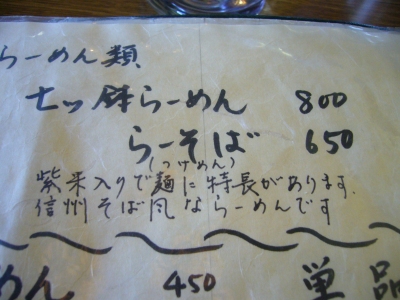 らーめん類
七ッ鉢らーめん 800
らーそば 650
(つけめん)
紫米入りで麺に特長があります。
信州そば風ならーめんです
めん 450 単品